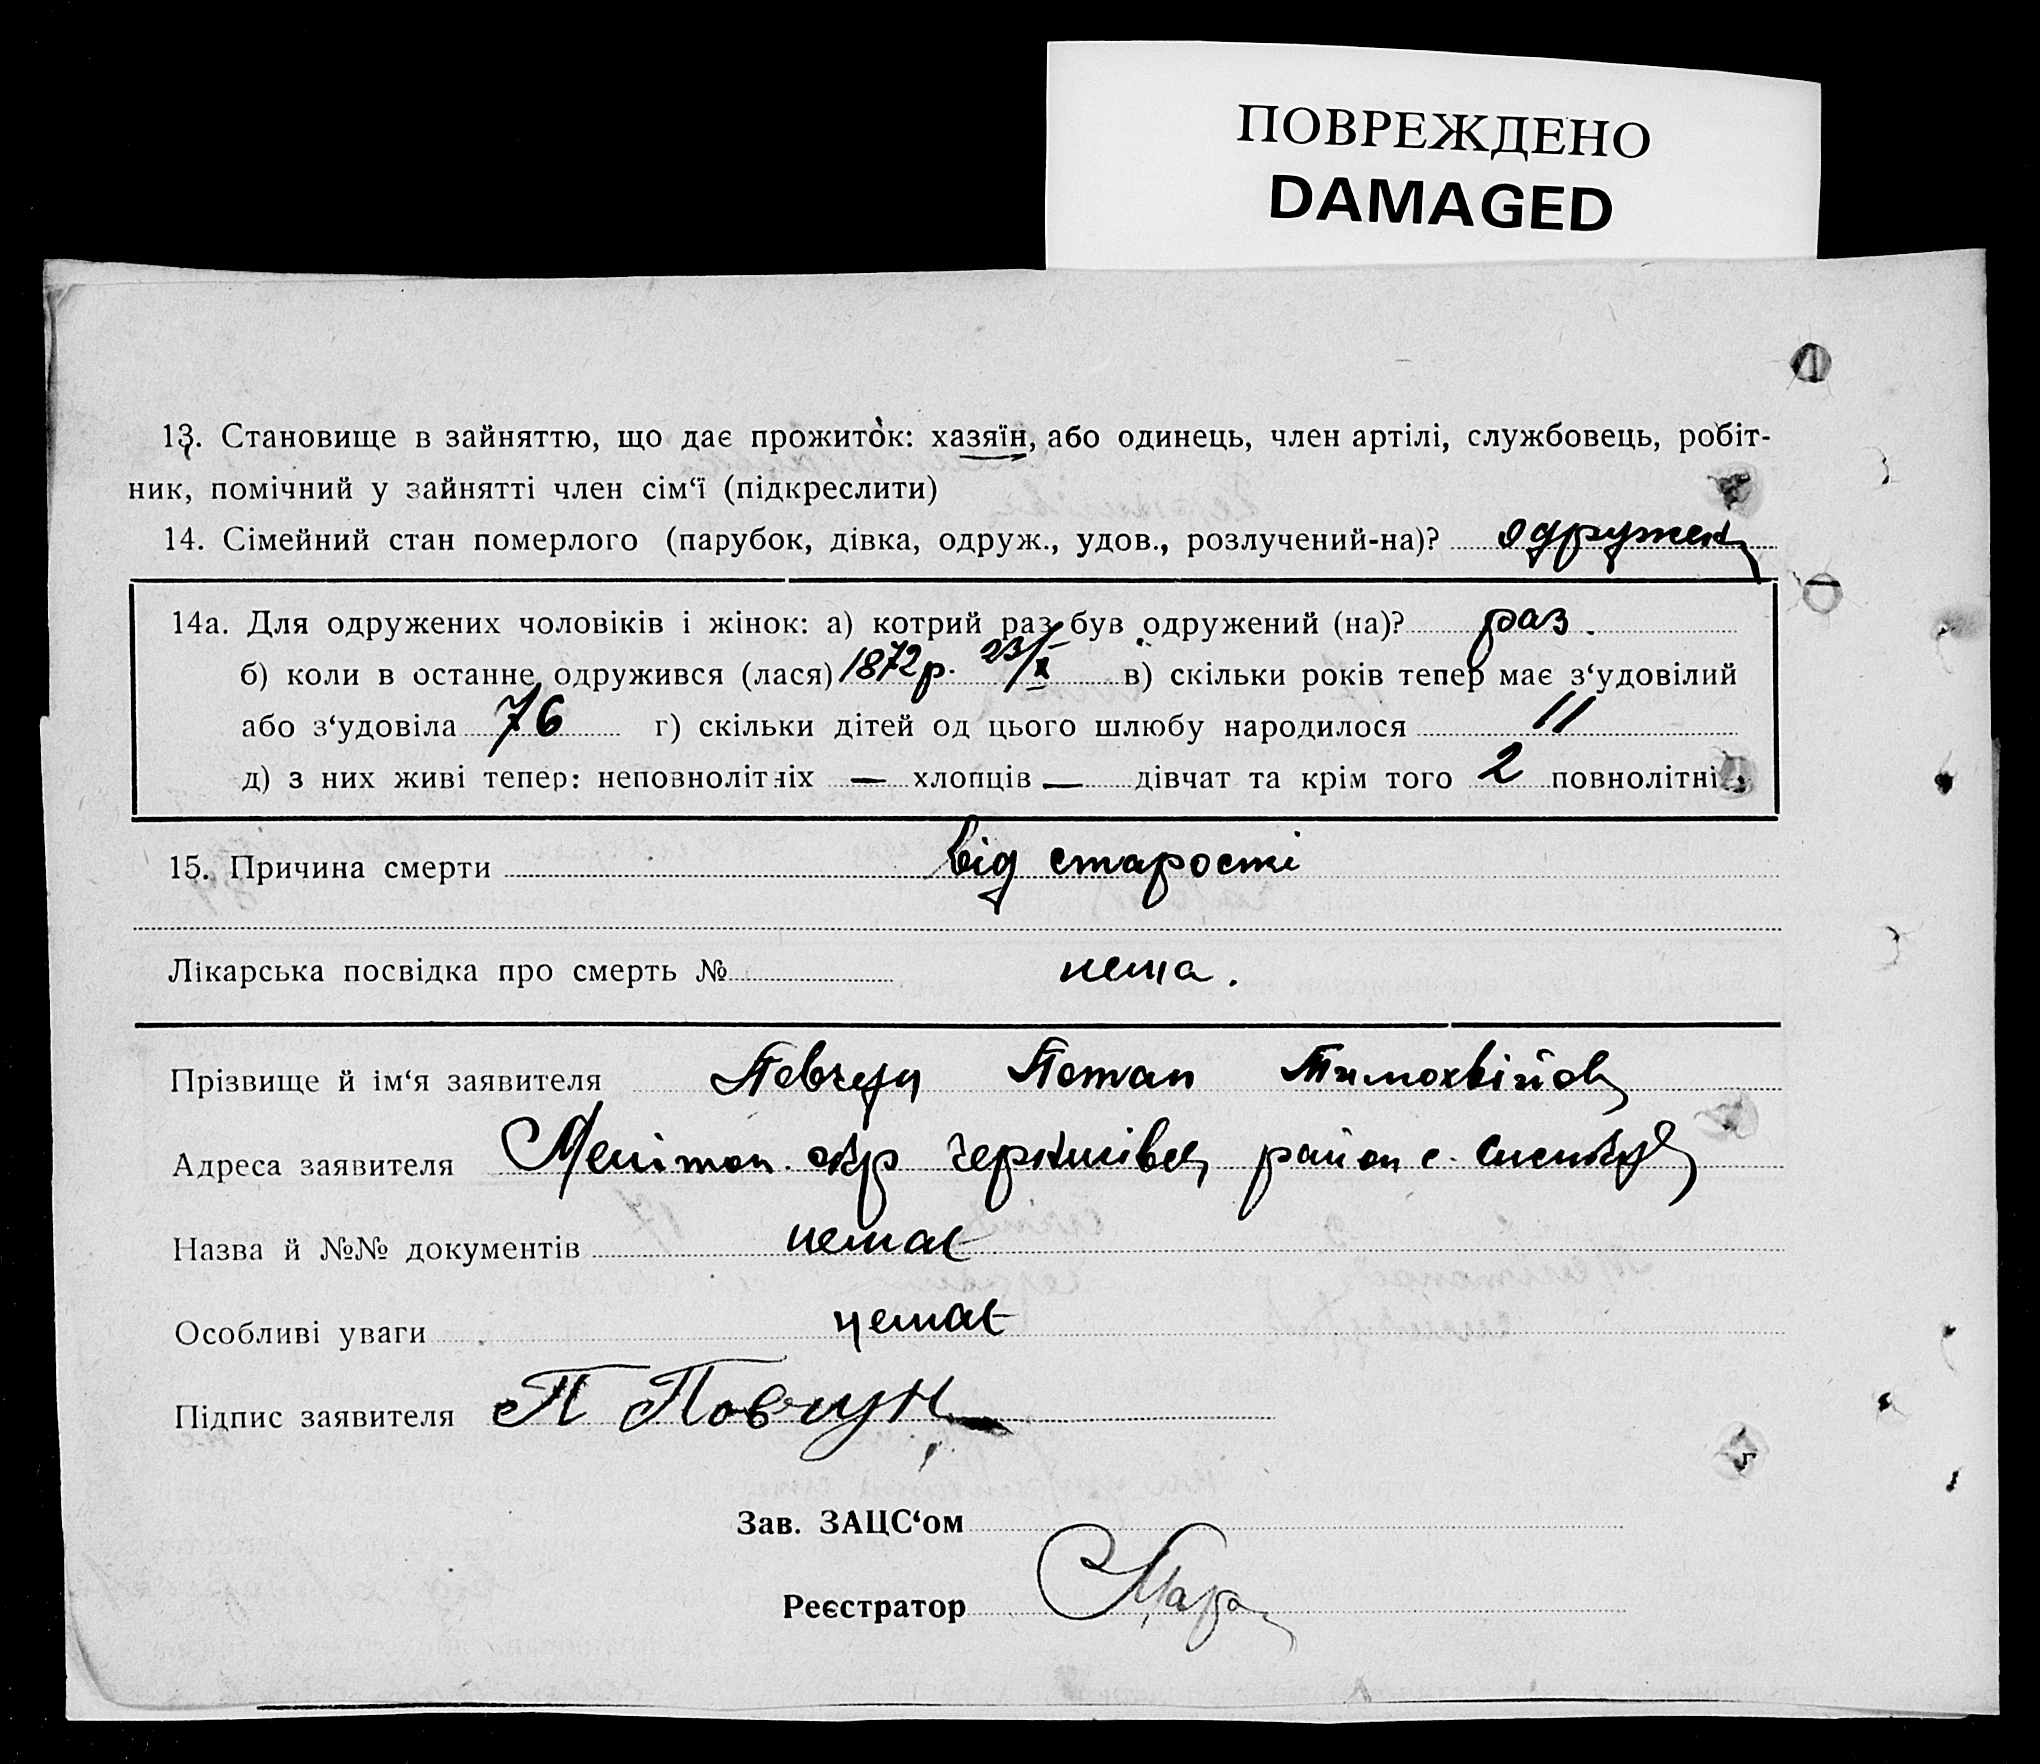 ПОВРЕЖДЕНО
DAMAGED
13. Становище в зайняттю, що дає прожиток: хазяїн, або одинець, член артілі, службовець, робіт-
ник, помічний у зайнятті член сім‘ї (підкреслити)
14. Сімейний стан померлого (парубок, дівка, одруж., удов., розлучений-на)? одружен
14а. Для одружених чоловіків і жінок: а) котрий раз був одружений (на)? раз.
б) коли в останнє одружився (лася) 1872 р. 23/X в) скільки років тепер має з‘удовілий
або з‘удовіла 76 г) скільки дітей од цього шлюбу народилося 11
д) з них живі тепер: неповнолітніх — хлопців — дівчат та крім того 2 повнолітні
15. Причина смерти від старости
Лікарська посвідка про смерть № нема.
Прізвище й ім‘я заявителя Повчун Потап Тимохвійов
Адреса заявителя Мелітоп. окр чернигівец район с.
Назва й №№ документів немає
Особливі уваги немає
Підпис заявителя П Повчун
Зав. ЗАЦС‘ом
Реєстратор